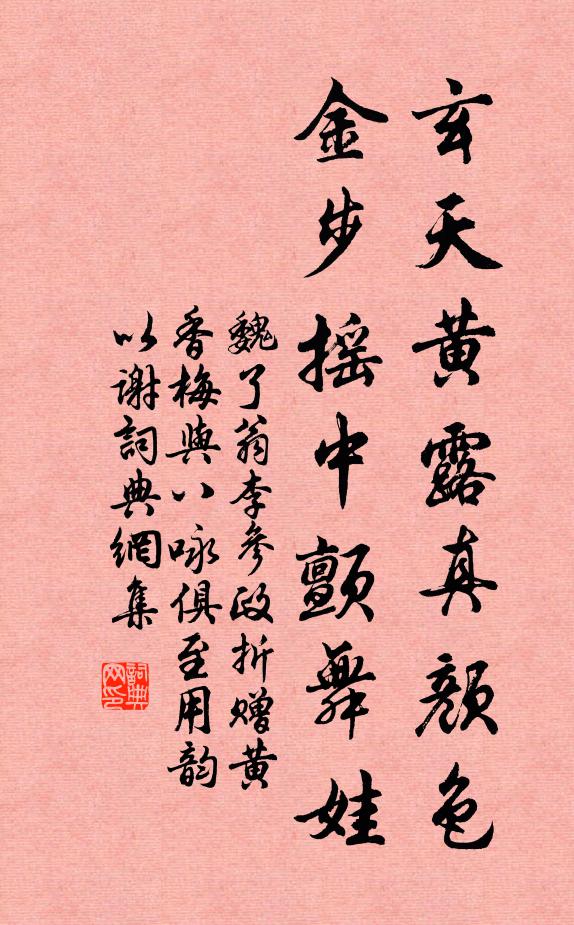 玄天黄露真颜色
金步摇中颤舞娃
魏了翁李参政折赠黄
香梅與八咏俱至用韵
以谢詞典網集
詞典网印